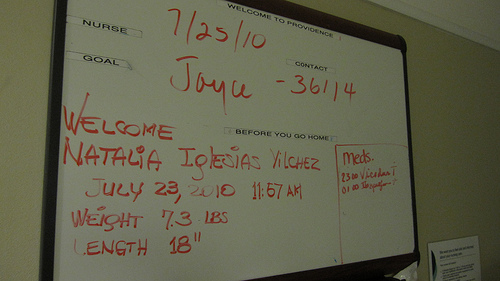 WELCOME TO PROVIDENCE
NURSE
7/25/10
GOAL
CONTACT
Joyce - 36114
BEFORE YOU GO HOME
WELCOME
NATALIA IGLESIAS VILCHEZ
JULY 23, 2010 11:57 AM
WEIGHT 7.3 LBS
LENGTH 18"
Meds.
2300
01:00